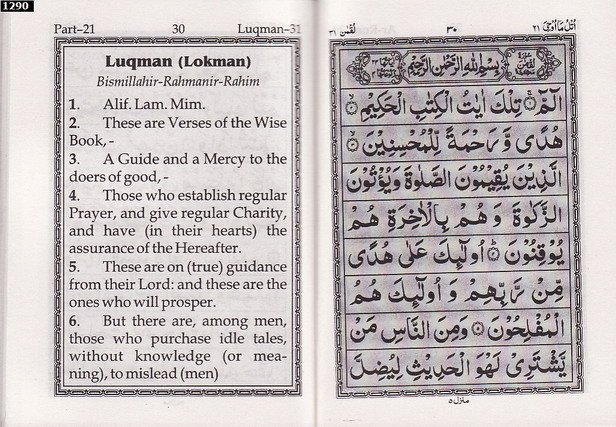 1290
Part–21 30 Luqman–31
Luqman (Lokman)
Bismillahir-Rahmanir-Rahim
1. Alif. Lam. Mim.
2. These are Verses of the Wise
Book, -
3. A Guide and a Mercy to the
doers of good, -
4. Those who establish regular
Prayer, and give regular Charity,
and have (in their hearts) the
assurance of the Hereafter.
5. These are on (true) guidance
from their Lord: and these are the
ones who will prosper.
6. But there are, among men,
those who purchase idle tales,
without knowledge (or mea-
ning), to mislead (men)
اُتْلُ مَآ اُوْحِیَ ٢١ ٣٠ لُقْمٰن ٣١
بِسْمِ اللّٰهِ الرَّحْمٰنِ الرَّحِیْمِ
الٓمّٓ ۱ تِلْكَ اٰیٰتُ الْكِتٰبِ الْحَكِیْمِ ۲
هُدًى وَّ رَحْمَةً لِّلْمُحْسِنِیْنَ ۳
الَّذِیْنَ یُقِیْمُوْنَ الصَّلٰوةَ وَیُؤْتُوْنَ
الزَّكٰوةَ وَ هُمْ بِالْاٰخِرَةِ هُمْ
یُوْقِنُوْنَ ۴ اُولٰٓىِٕكَ عَلٰى هُدًى
مِّنْ رَّبِّهِمْ وَ اُولٰٓىِٕكَ هُمُ
الْمُفْلِحُوْنَ ۵ وَمِنَ النَّاسِ مَنْ
یَّشْتَرِیْ لَهْوَ الْحَدِیْثِ لِیُضِلَّ
منزل ٥